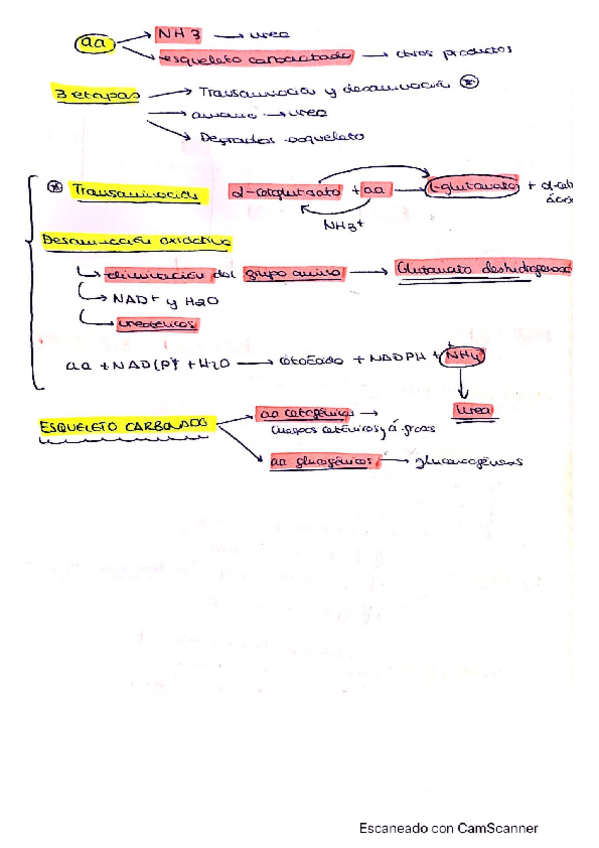 aa → NH3 → urea
→ esqueleto carbonatado → otros productos
3 etapas → Transaminación y desaminación *
→ amonio → urea
→ Degradas esqueleto
* Transaminación α-cetoglutarato + aa → L-glutamato +
NH3+
Desaminación oxidativa
→ eliminación del grupo amino → Glutamato deshidrogenasa
→ NAD+ y H2O
→ ureotélicos
aa + NAD(P)+ + H2O → cetoácido + NADPH + NH4+
Urea
ESQUELETO CARBONADO → aa cetogénicos →
cuerpos cetónicos y á. grasos
→ aa glucogénicos → gluconeogénesis
Escaneado con CamScanner